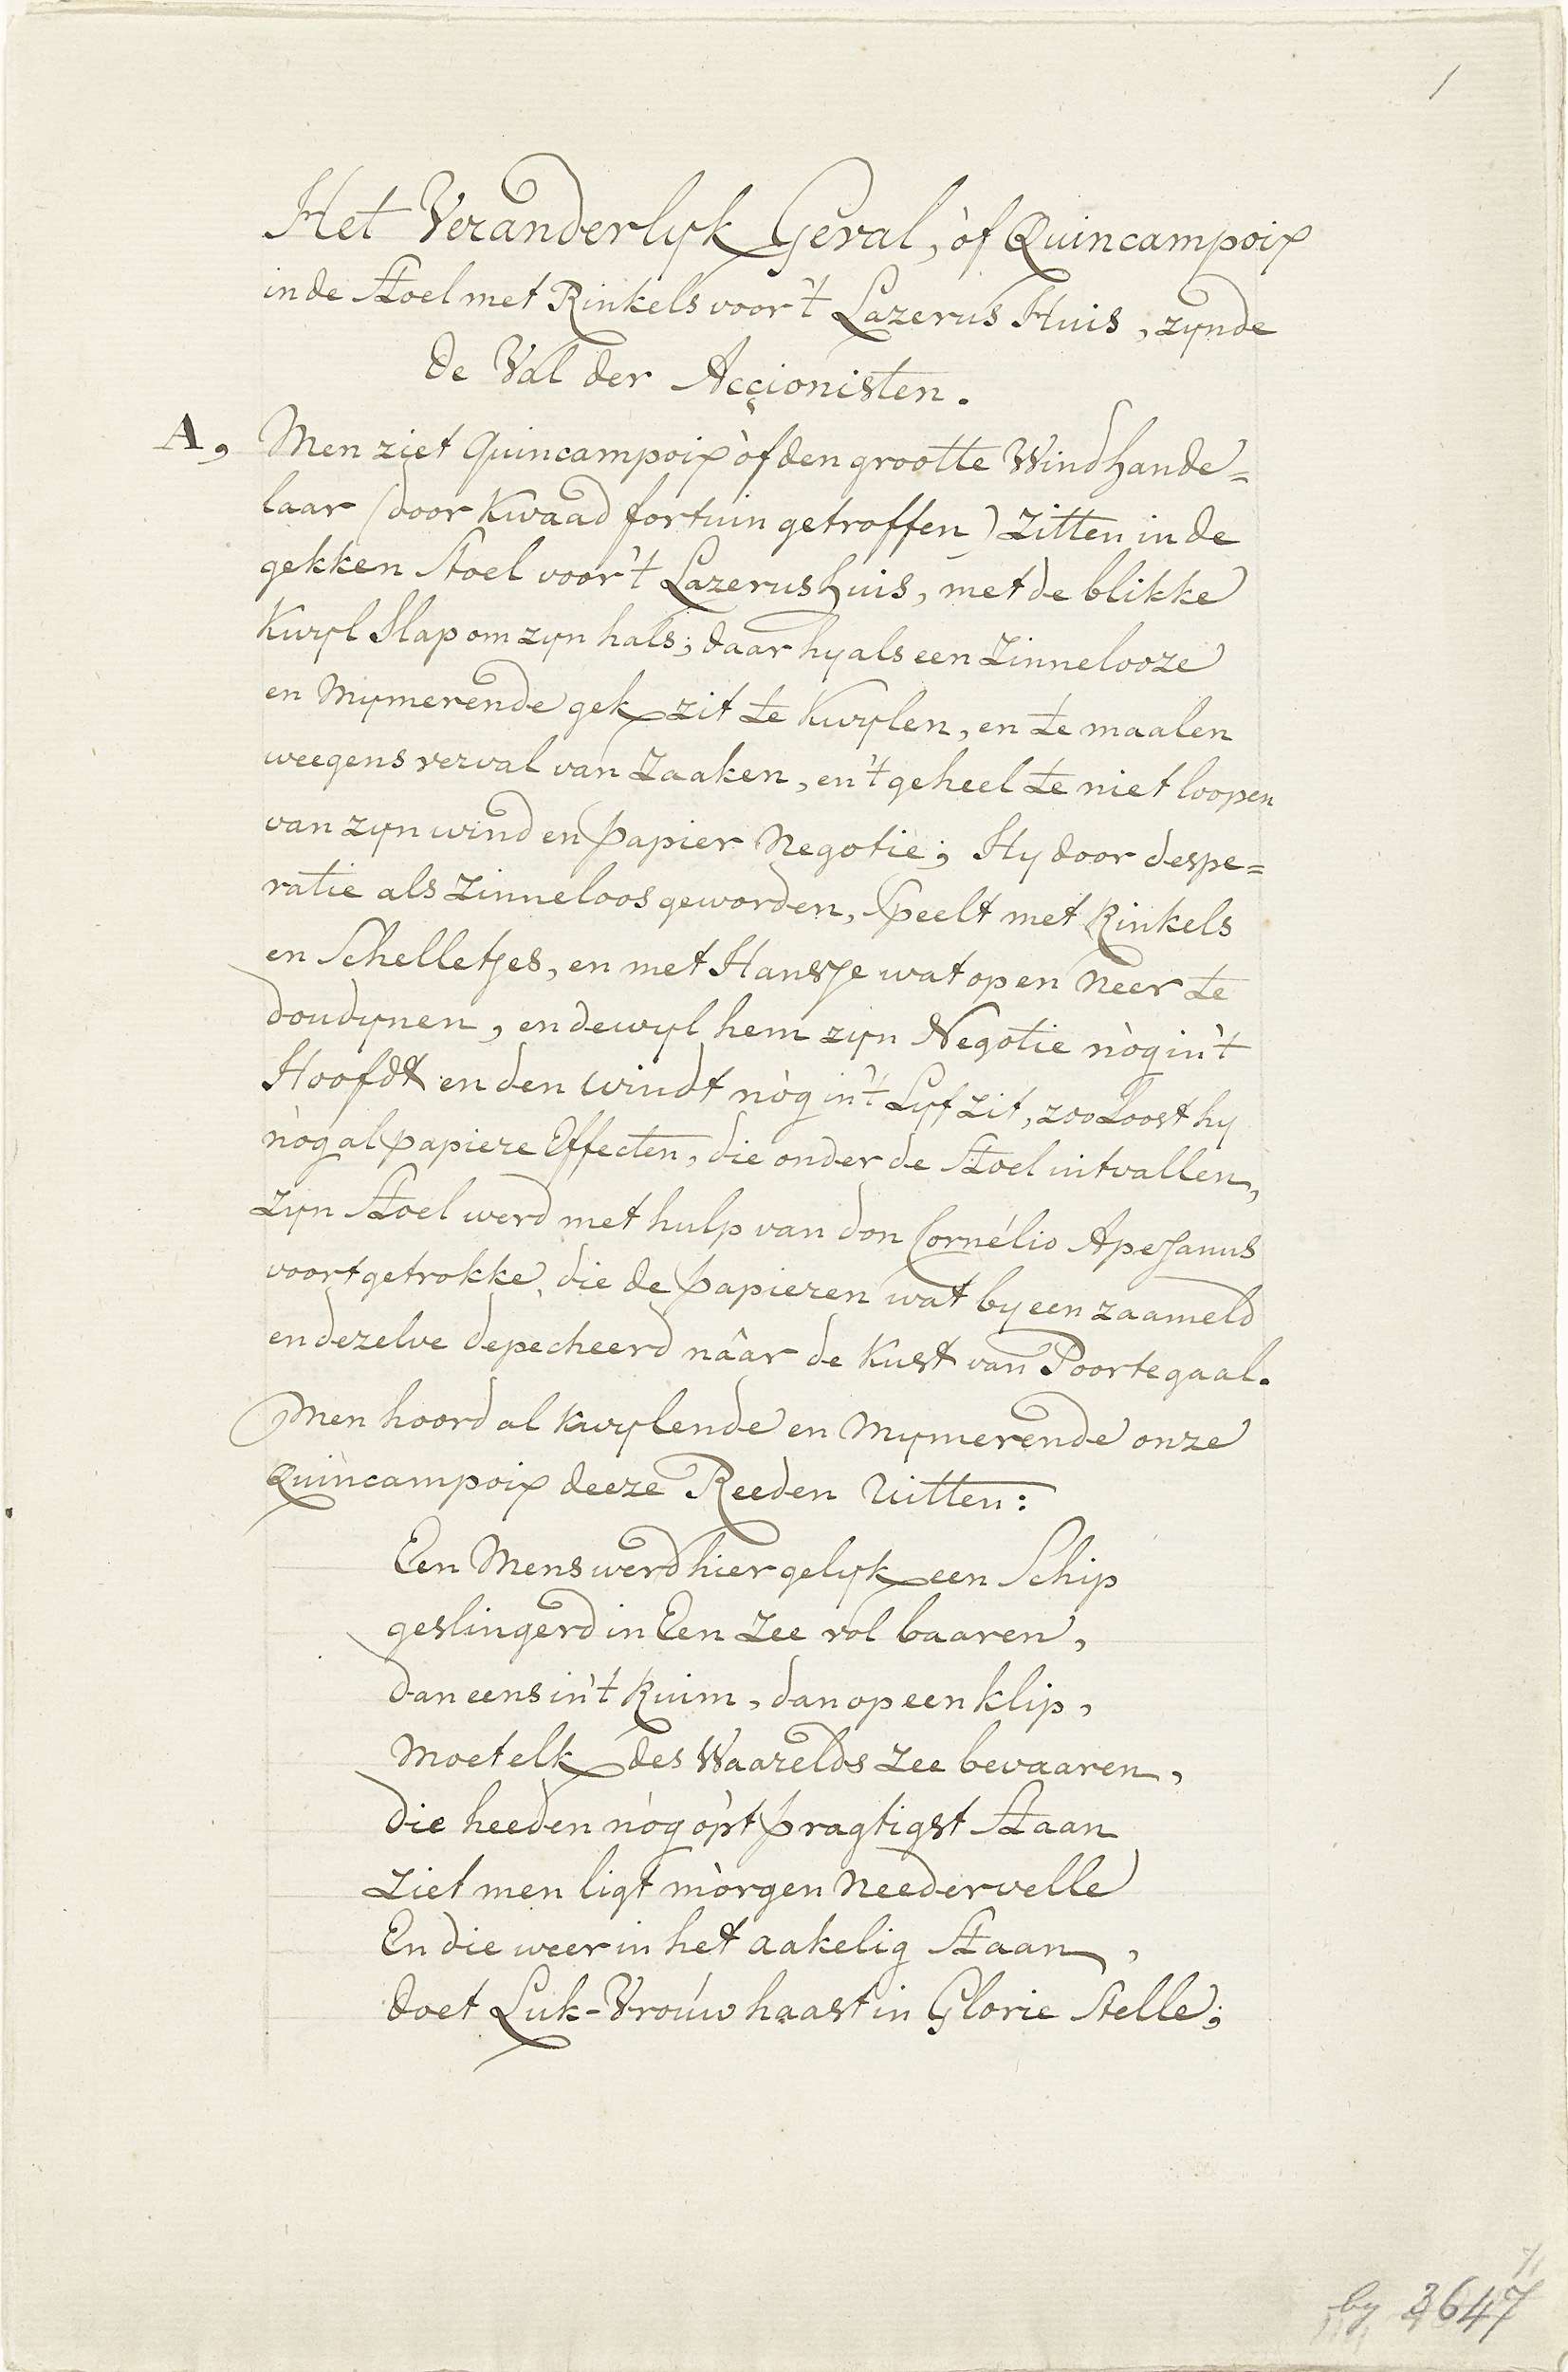 1
Het Veranderlyk Geval, òf Quincampoix
in de Stoel met Rinkels voor 't Lazerus Huis, zynde
de Val der Accionisten.
A, Men ziet Quincampoix òf den grootte Windhande=
laar (door Kwaad fortuin getroffen) zitten in de
gekken Stoel voor 't Lazerushuis, met de blikke
Kwyl Slap om zyn hals; daar hy als een Zinnelooze
en Mymerende gek zit te Kwylen, en te maalen
weegens verval van Zaaken, en 't geheel te niet loopen
van zyn wind en papier Negotie; Hy door despe=
ratie als Zinneloos geworden, Speelt met Rinkels
en Schelletjes, en met Hansje wat op en Neer te
doudynen, en dewyl hem zyn Negotie nòg in 't
Hoofdt en den windt nòg in 't Lyf zit, zoo Loost hy
nòg al papiere Effecten, die onder de Stoel uitvallen,
zyn Stoel werd met hulp van don Cornélio Apejanus
voortgetrokke, die de papieren wat by een zaameld
en dezelve depecheerd nâar de Kust van Poortegaal.
Men hoord al kwylende en Mymerende onze
Quincampoix deeze Reeden Uitten:
Een Mens werd hier gelyk een Schip
geslingerd in Een Zee vol baaren,
dan eens in 't Ruim, dan op een klip,
Moet elk des Waarelds Zee bevaaren,
die heeden nòg òp't pragtigst Staan
Ziet men ligt mòrgen Needervelle
En die weer in het aakelig Staan,
doet Luk-Vrouw haast in Glorie Stelle;
by 3647